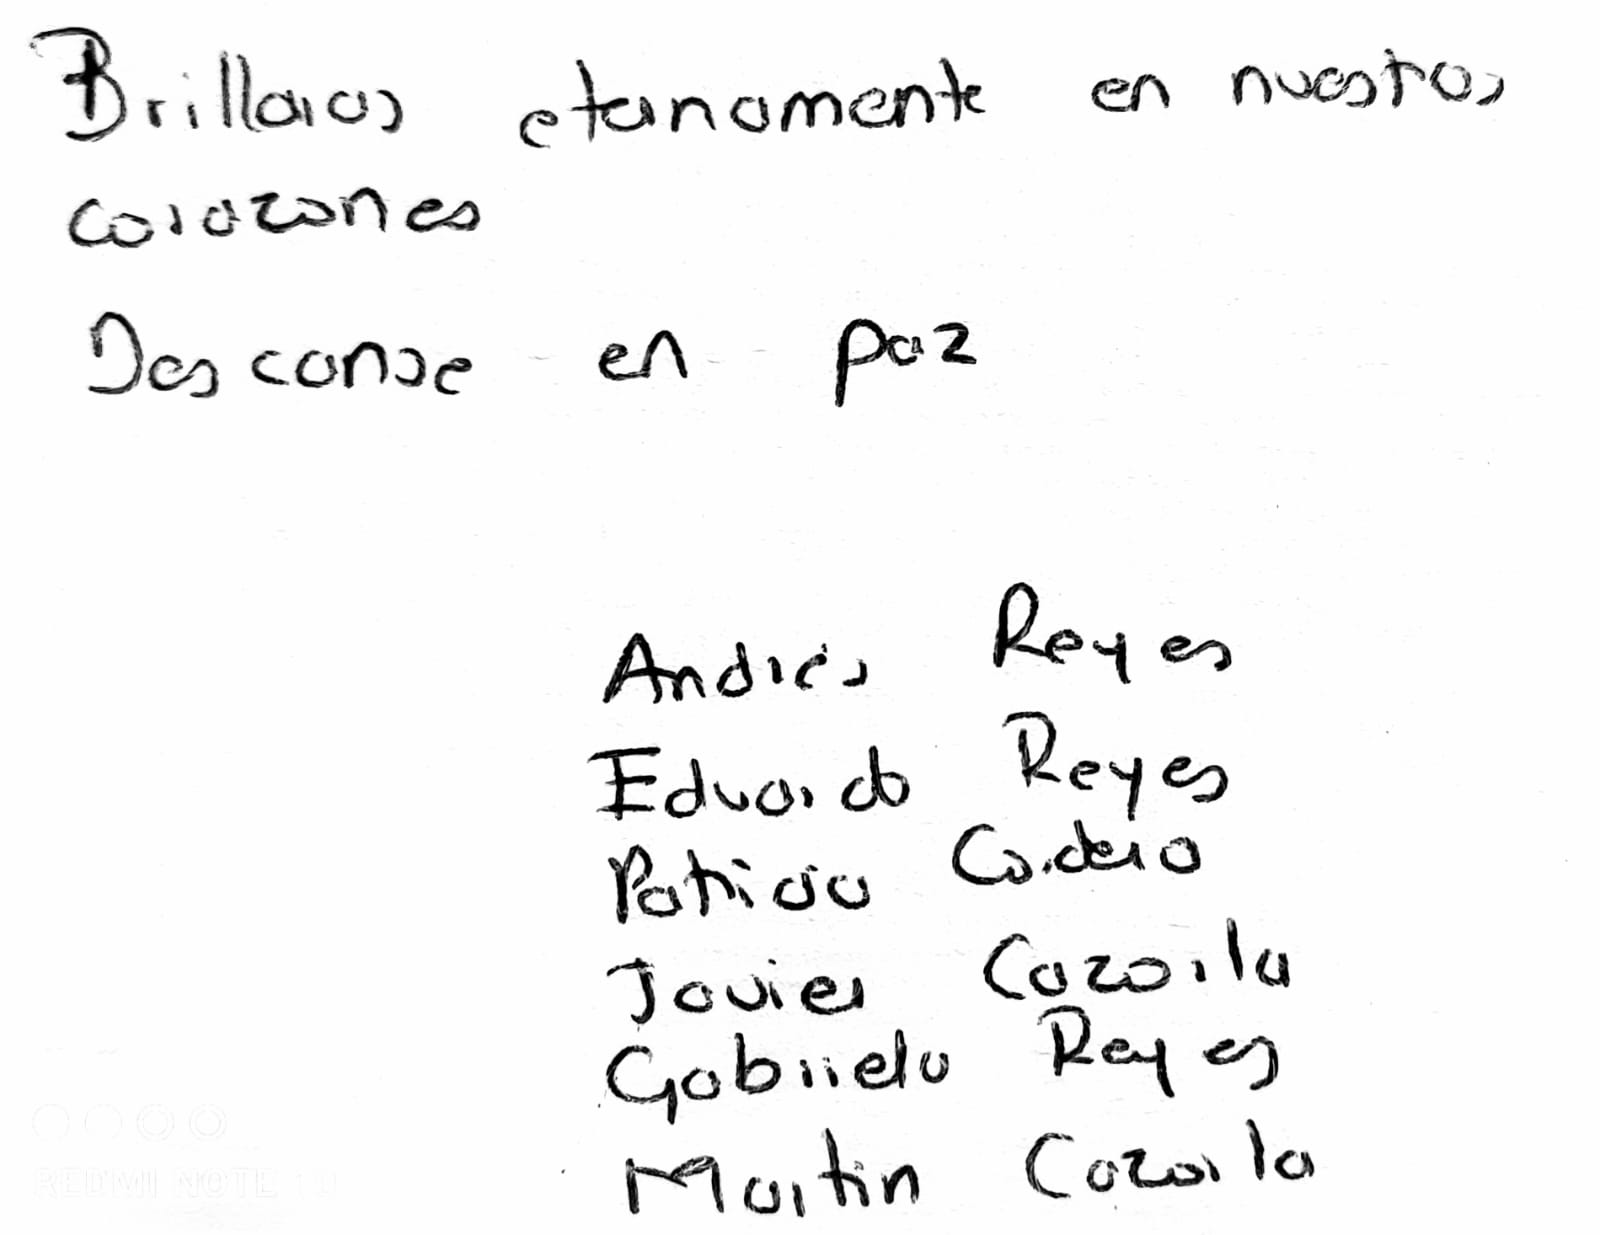 Brillaras eternamente en nuestros
corazones
Descanse en paz
Andrés Reyes
Eduardo Reyes
Patricia Cordero
Javier Cazorla
Gabriela Reyes
Martin Cazorla
REDMI NOTE 10